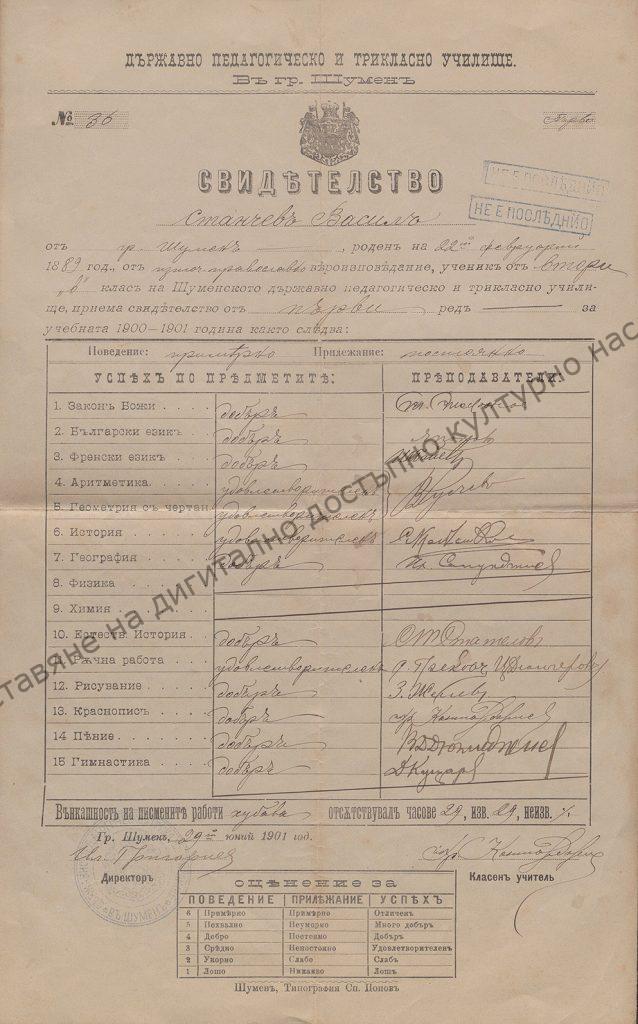 ДЪРЖАВНО ПЕДАГОГИЧЕСКО И ТРИКЛАСНО УЧИЛИЩЕ.
Въ гр. Шуменъ
№ 36
СВИДѢТЕЛСТВО
НЕ Е ПОСЛѢДНИО
НЕ Е ПОСЛѢДНИО
Станчевъ Василъ
отъ гр. Шуменъ, роденъ на 22ий февруарий
1889 год., отъ източно-православно вѣроизповѣдание, ученикъ отъ втори
„в" класъ на Шуменското държавно педагогическо и трикласно учили-
ще, приема свидѣтелство отъ първи редъ за
учебната 1900—1901 година както слѣдва:
Поведение: примѣрно Прилежание: постоянно
УСПѢХЪ ПО ПРЕДМЕТИТѢ: ПРЕПОДАВАТЕЛИ:
1. Законъ Божи добъръ
2. Български езикъ добъръ
3. Френски езикъ добъръ
4. Аритметика удовлетворителенъ
5. Геометрия съ чертан. удовлетворителенъ
6. История удовлетворителенъ
7. География добъръ
8. Физика
9. Химия
10. Естеств. История добъръ
11. Рѫчна работа удовлетворителенъ
12. Рисувание добъръ
13. Краснописъ добъръ
14 Пѣние добъръ
15 Гимнастика добъръ
Вънкашность на писмените работи хубава отсѫтствувалъ часове 29, изв. 29, неизв. %
Гр. Шуменъ, 29ий юний 1901 год.
Директоръ Класенъ учитель
оцѣнение за
ПОВЕДЕНИЕ ПРИЛѢЖАНИЕ УСПѢХЪ
6 Примѣрно Примѣрно Отличенъ
5 Похвално Неуморно Много добъръ
4 Добро Постоянно Добъръ
3 Срѣдно Непостоянно Удовлетворителенъ
2 Укорно Слабо Слабъ
1 Лошо Никакво Лошъ
Шуменъ, Типография Сп. Поповъ
ставяне на дигитално достъпно културно нас